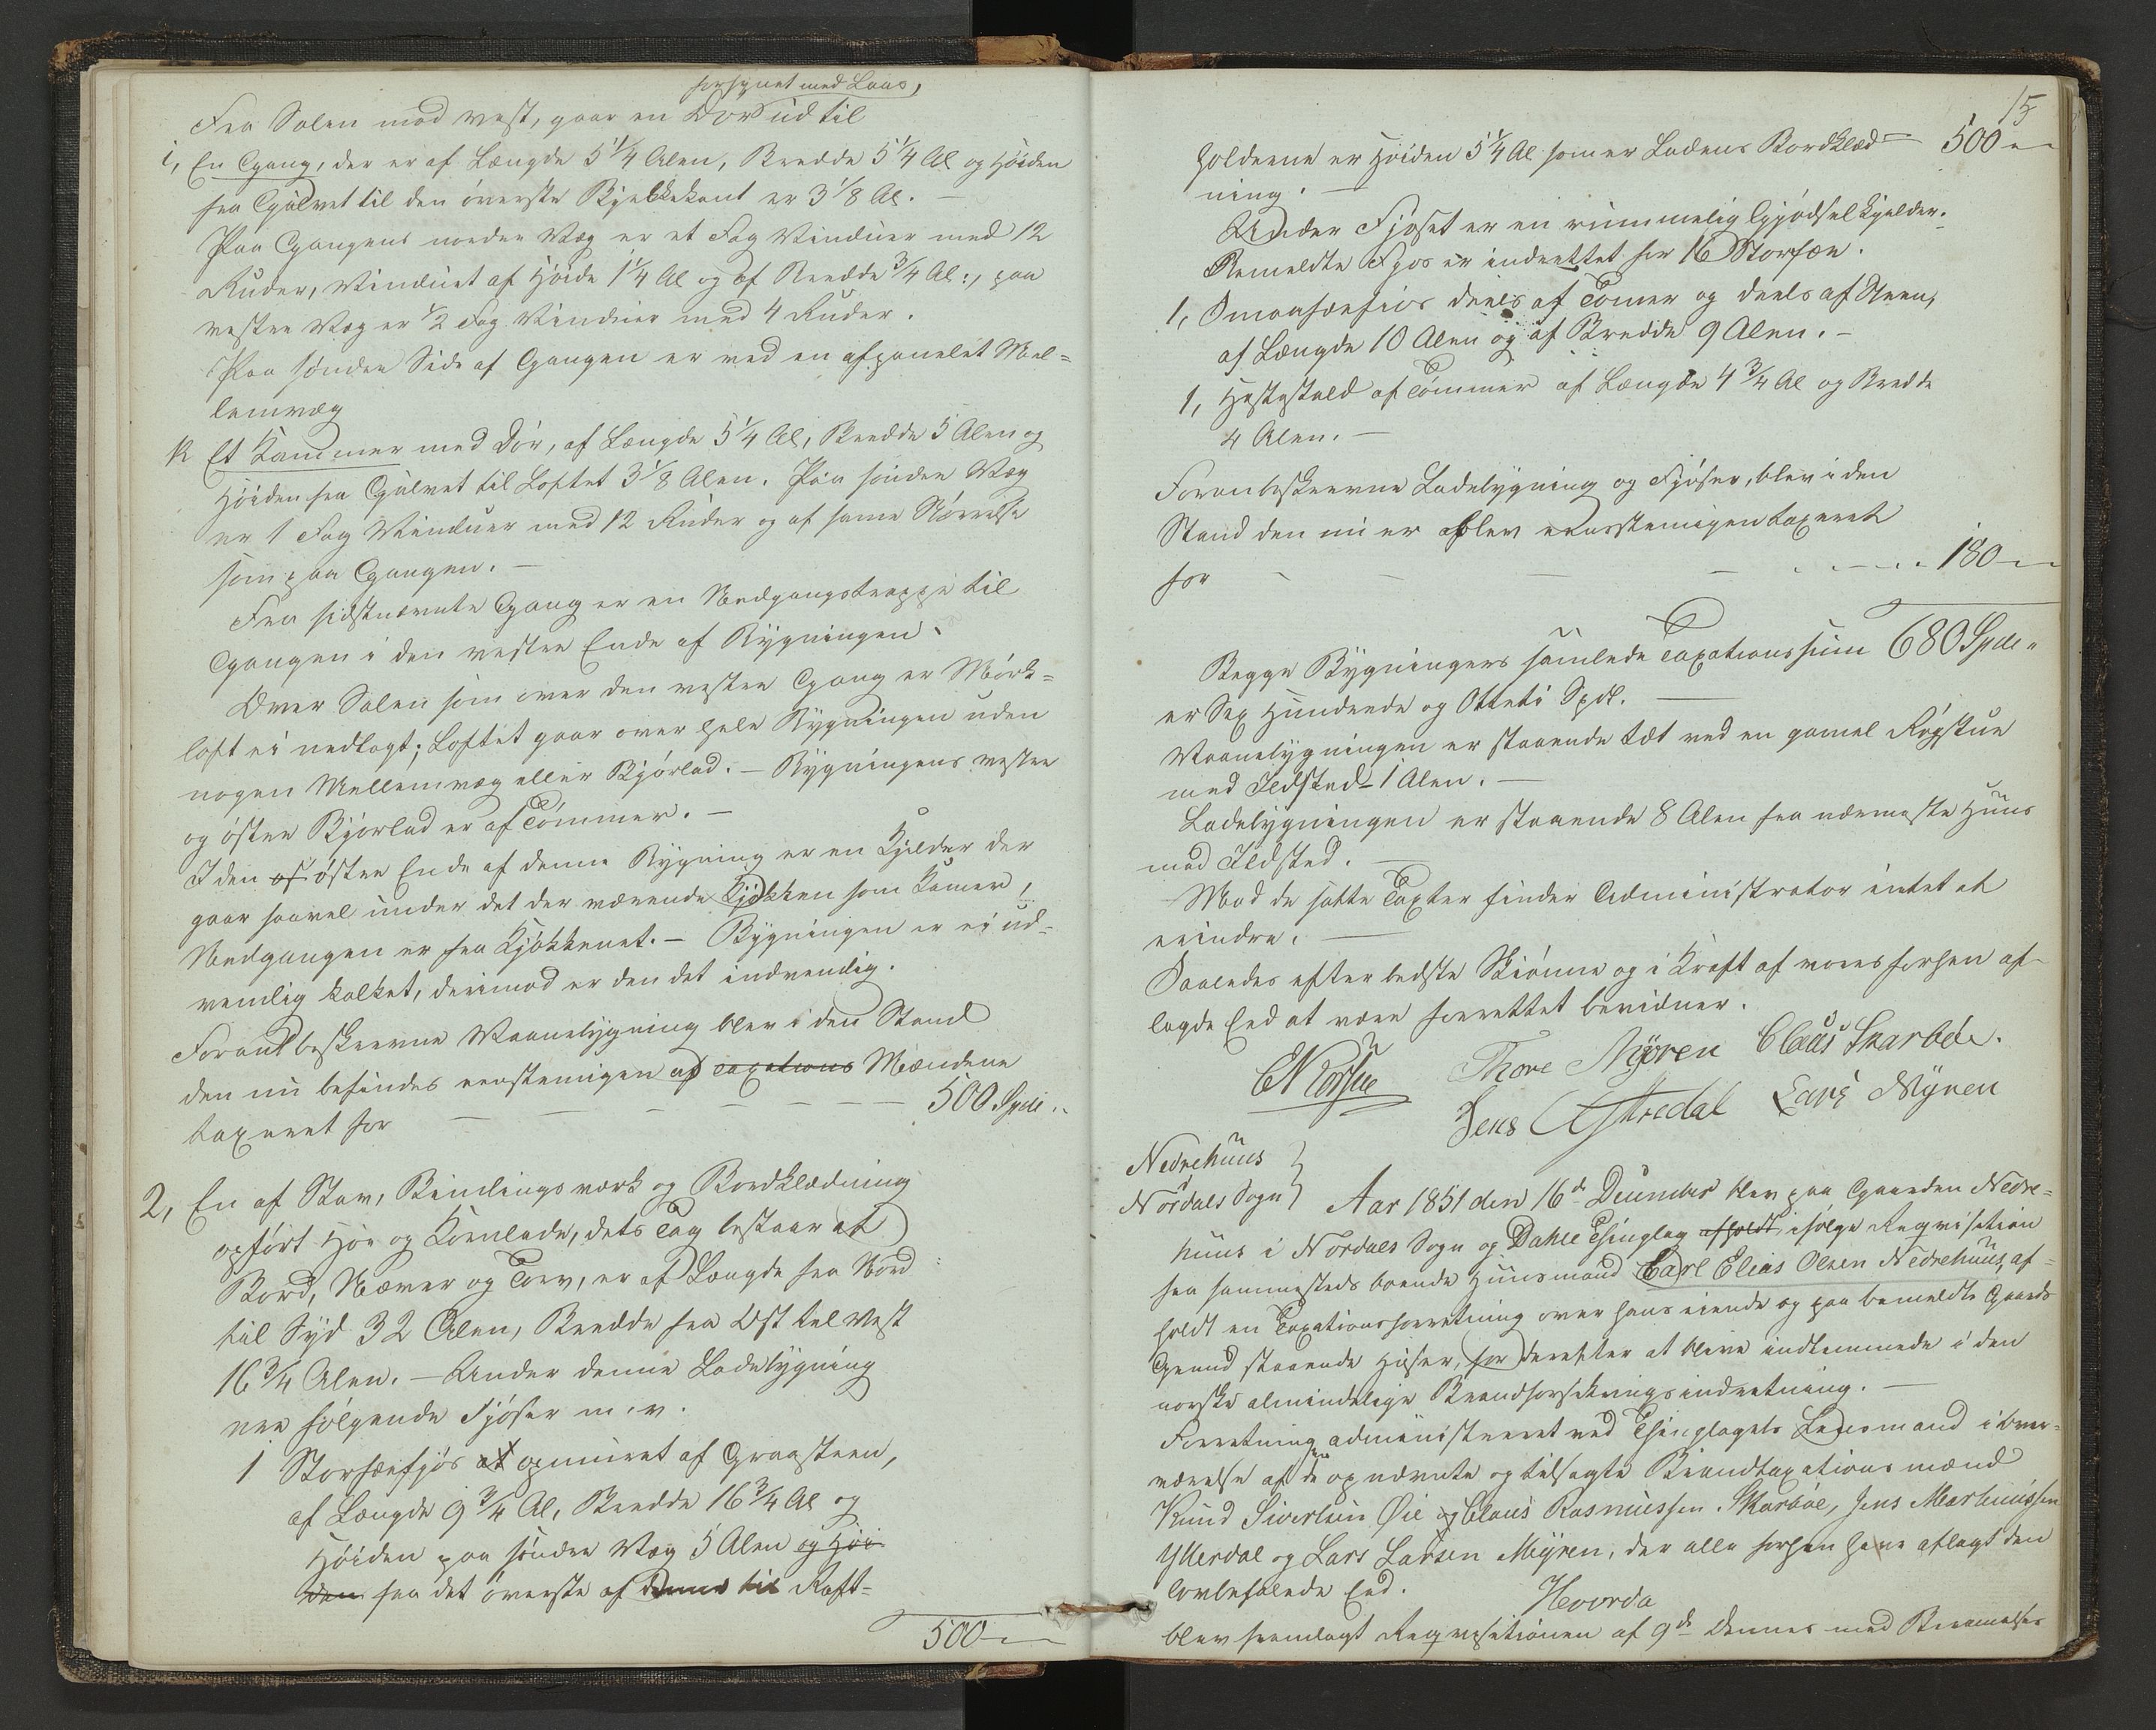 forsynet med Laas,
Fra Salen mod vest, gaar en Dør ud til
i, En Gang, der er af Længde 5 1/4 Alen, Bredde 5 1/4 Al og Høiden
fra Gulvet til den øverste Bjelkekant er 3 1/8 Al. –
Paa Gangens nordre Væg er et Fag Vinduer med 12
Ruder, Vinduet af Høide 1 1/4 Al og af Bredde 3/4 Al:, paa
vestre Væg er 1/2 Fag Vinduer med 4 Ruder.
Paa søndre Side af Gangen er ved en afpanelet Mel=
lemvæg
k Et Kammer med Dør, af Længde 5 1/4 Al, Bredde 5 Alen og
Høiden fra Gulvet til Loftet 3 1/8 Alen. Paa søndre Væg
er 1 Fag Vinduer med 12 Ruder og af same Størrelse
som paa Gangen. –
Fra sidstnævnte Gang er en Nedgangstrappe til
Gangen i den vestre Ende af Bygningen.
Over Salen som over den vestre Gang er Mørk=
loft ei nedlagt; Loftet gaar over hele Bygningen uden
nogen Mellemvæg eller Bjørlad. – Bygningens vestre
og østre Bjørlad er af Tømmer. –
I den af østre Ende af denne Bygning er en Kjelder der
gaar saavel under det der værende Kjøkken som Kamer,
Nedgangen er fra Kjøkkenet. – Bygningen er ei ud=
vendig kalket, derimod er den det indvendig.
Foranbeskrevne Vaanebygning blev i den Stand
den nu befindes eenstemigen af Taxations Mændene
taxeret for – – – – – – 500 Spdl..
2, En af Stav, Bindingsverk og Bordklædning
opført Høe og Kornlade, dets Tag bestaar af
Bord, Næver og Torv, er af Længde fra Nord
til Syd 32 Alen, Bredde fra Øst til Vest
16 3/4 Alen. – Under denne Ladebygning
ere følgende Fjøser m. v.
1 Storfæefjøs at opmuret af Graasteen,
af Længde 9 3/4 Al, Bredde 16 3/4 Al og
Høiden paa søndre Væg 5 Alen og Høi
den fra det øverste af denne til Raft=
500 – –
15
holderne er Høiden 5 1/4 Al som er Ladens Bordklæd= 500 – –
ning. –
Under Fjøset er en rummelig Gjødselkjelder.
Bemeldte Fjøs er indrettet for 16 Storfæe.
1, Smaafæefjøs deels af Tømer og deels af Steen,
af Længde 10 Alen og af Bredde 9 Alen. –
1, Hestestald af Tømmer af Længde 4 3/4 Al og Bredde
4 Alen. –
Foranbeskrevne Ladebygning og Fjøser, blev i den
Stand den nu er blev eensstemigen taxeret
for – – – – . . . . 180 – –
Begge Bygningers samlede Taxationssum 680 Spdl..
er Sex Hundrede og Otteti Spdl. –
Vaanebygningen er staaende tæt ved en gamel Røgstue
med Ildsted 1 Alen. –
Ladebygningen er staaende 8 Alen fra nærmeste Huus
med Ildsted. –
Mod de satte Taxter finder Administrator intet at
erindre. –
Saaledes efter bedste Skiønne og i Kraft af vores forhen af-
lagde Eed at være forrettet bevidner.
Thore Myren Claus Skarbøe.
Jens Lars Myren
Nedrehuus
Nordals Sogn } Aar 1851 den 16de December blev paa Gaarden Nedre=
huus i Nordals Sogn og Dahle Thinglag afholdt, ifølge Reqvisition
fra sammesteds boende Huusmand Carl Elias Olsen Nedrehuus, af=
holdt en Taxationsforretning over hans eiende og paa bemeldte Gaards
Grund staaende Huser, for derefter at blive indlemmede i den
norske almindelige Brandforsikringsindretning. –
Forretning administreret ved Thinglagets Lensmand i Over=
værelse af de opnævnte og tilsagte Brandtaxationsmænd
Knud Sivertsen Øie og Claus Rasmussen Skarbøe, Jens Marthinussen
Ytterdal og Lars Larsen Myren, der alle forhen have aflagt den
lovbefalede Eed.
Hvorda
blev fremlagt Reqvisitionen af 9de Dennes med Berammelses